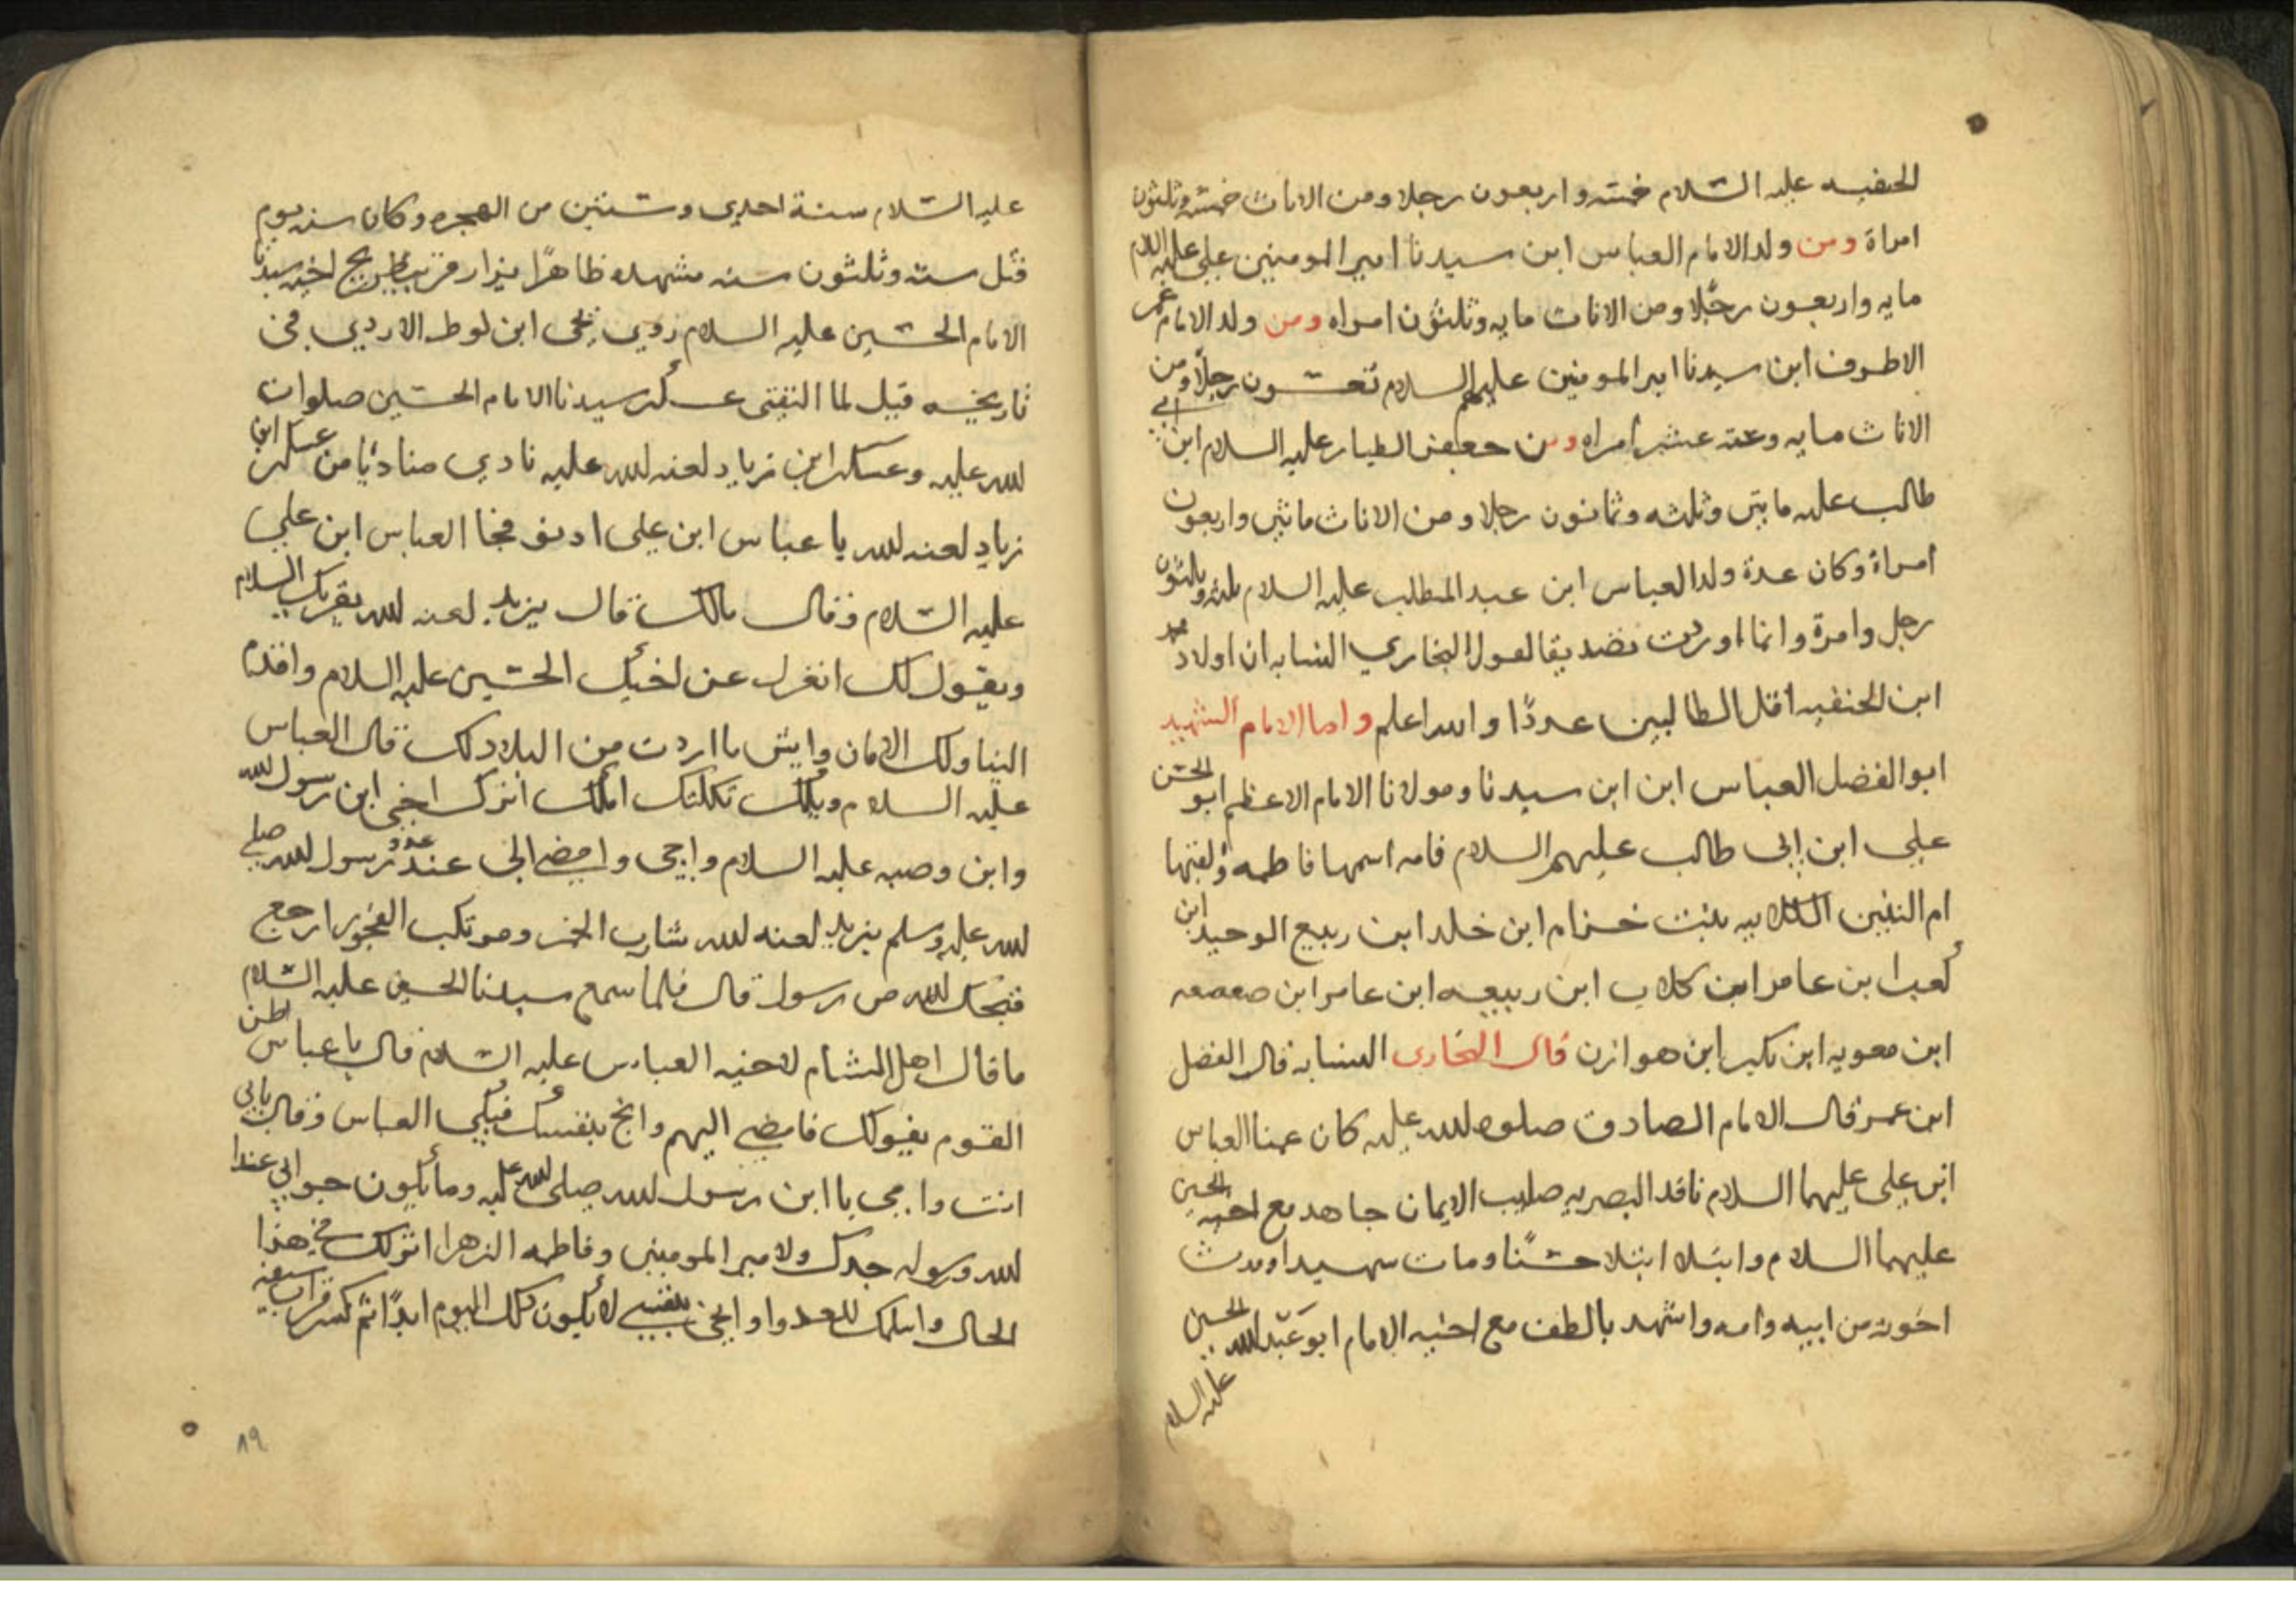 الحنفيه عليه السلام خمسه واربعون رجلا ومن الاناث خمسه وثلثون
امراة ومن ولد الامام العباس ابن سيدنا امير المومنين علي عليه السلام
مايه واربعون رجلا ومن الاناث مايه وثلثون امراه ومن ولد الامام عمر
الاطرف ابن سيدنا امير المومنين عليهم السلام تسعون رجلا ومن
الاناث مايه وعشر امراه ومن جعفر الطيار عليه السلام ابن ابي
طالب عليه مايتى وثلثه وثمانون رجلا ومن الاناث مائتي واربعون
امراة وكان عدة ولد العباس ابن عبد المطلب عليه السلام وثلثون
رجل وامرة وانما اوردت تصديقا لقول البخاري النسابه ان اولاد محمد
ابن الحنفيه اقل الطالبين عددًا والله اعلم واما الامام الشهيد
ابو الفضل العباس ابن ابن سيدنا ومولانا الامام الاعظم ابو الحسن
علي ابن ابي طالب عليهم السلام فامه اسمها فاطمه ولقبها
ام البنين الكلابيه بنت حزام ابن خلد ابن ربيع الوحيد ابن
كعب ابن عامر ابن كلاب ابن ربيعه ابن عامر ابن صعصعه
ابن معويه ابن بكير ابن هوازن قال البخارى النسابه قال الفضل
ابن عمر قال الامام الصادق صلوه الله عليه كان عمنا العباس
ابن علي عليهما السلام نافد البصريه صليب الايمان جاهد مع اخيه الحسين
عليهما السلام وابتلا ابتلا حسنًا ومات شهيدا وورث
اخوته من ابيه وامه واشهد بالطف مع اخيه الامام ابو عبد الله الحسين
عليه السلام
عليه السلام سنة احدي وستين من الهجره وكان سنه يوم
قتل سته وثلثون سنه مشهده ظاهرًا يزار قريب ضريح اخيه سيدنا
الامام الحسين عليه السلام روي يحى ابن لوط الازدي في
تاريخه قيل لما التقتى عسكر سيدنا الامام الحسين صلوات
الله عليه وعسكر ابن زياد لعنه الله عليه نادي مناديًا من عسكر ابن
زياد لعنه الله يا عباس ابن علي ادنو فجا العباس ابن علي
عليه السلام فقال مالك قال يزيد لعنه الله يقريك السلام
ويقول لك انعزل عن اخيك الحسين عليه السلام واقدم
الينا ولك الامان وايش ما اردت من البلاد لك قال العباس
عليه السلام ويلك ثكلتك امك اترك اخي ابن رسول الله
وابن وصيه عليه السلام واجى وامضي الى عند عدو رسول الله صلي
الله عليه وسلم يزيد لعنه الله شارب الخمر ومرتكب الفجور ارجع
قبحك الله من رسول قال فلما سمع سيدنا الحسين عليه السلام
ما قال اهل الشام لاخيه العباس عليه السلام قال يا عباس اظن
القوم يفيولك فامضي اليهم وانج بنفسك فبكي العباس وقال بابي
انت وامي يا ابن رسول الله صلى الله عليه وما يكون جوابي عند
الله ورسوله جدك ولامير المومنين وفاطمه الزهرا اتركك في هذا
الحال واسلمك للعدوا وانجي بنفسي لا يكون ذلك اليوم ابدًا ثم كسر قراب سيفه
٨٩